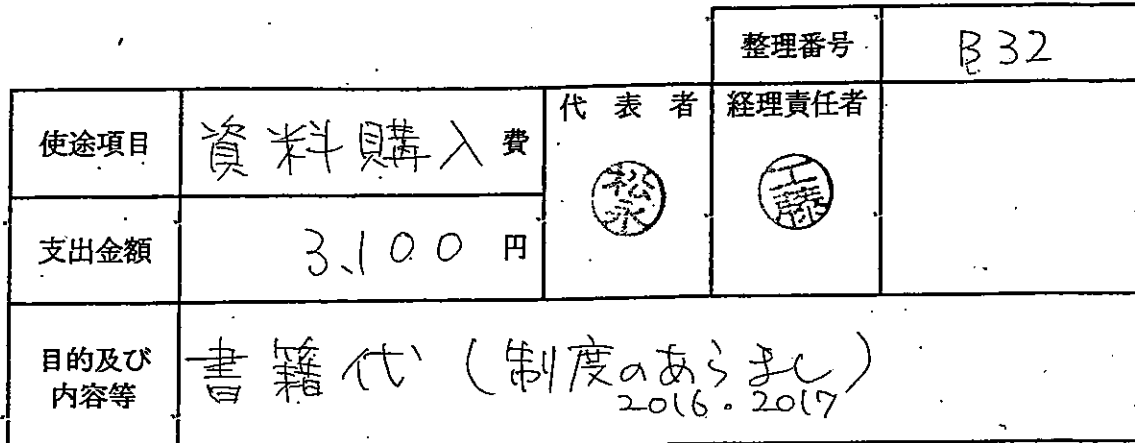 整理番号 B32
使途項目 資料購入費
代表者 経理責任者
松永 工藤
支出金額 3,100 円
目的及び内容等 書籍代 (制度のあらまし)
2016.2017